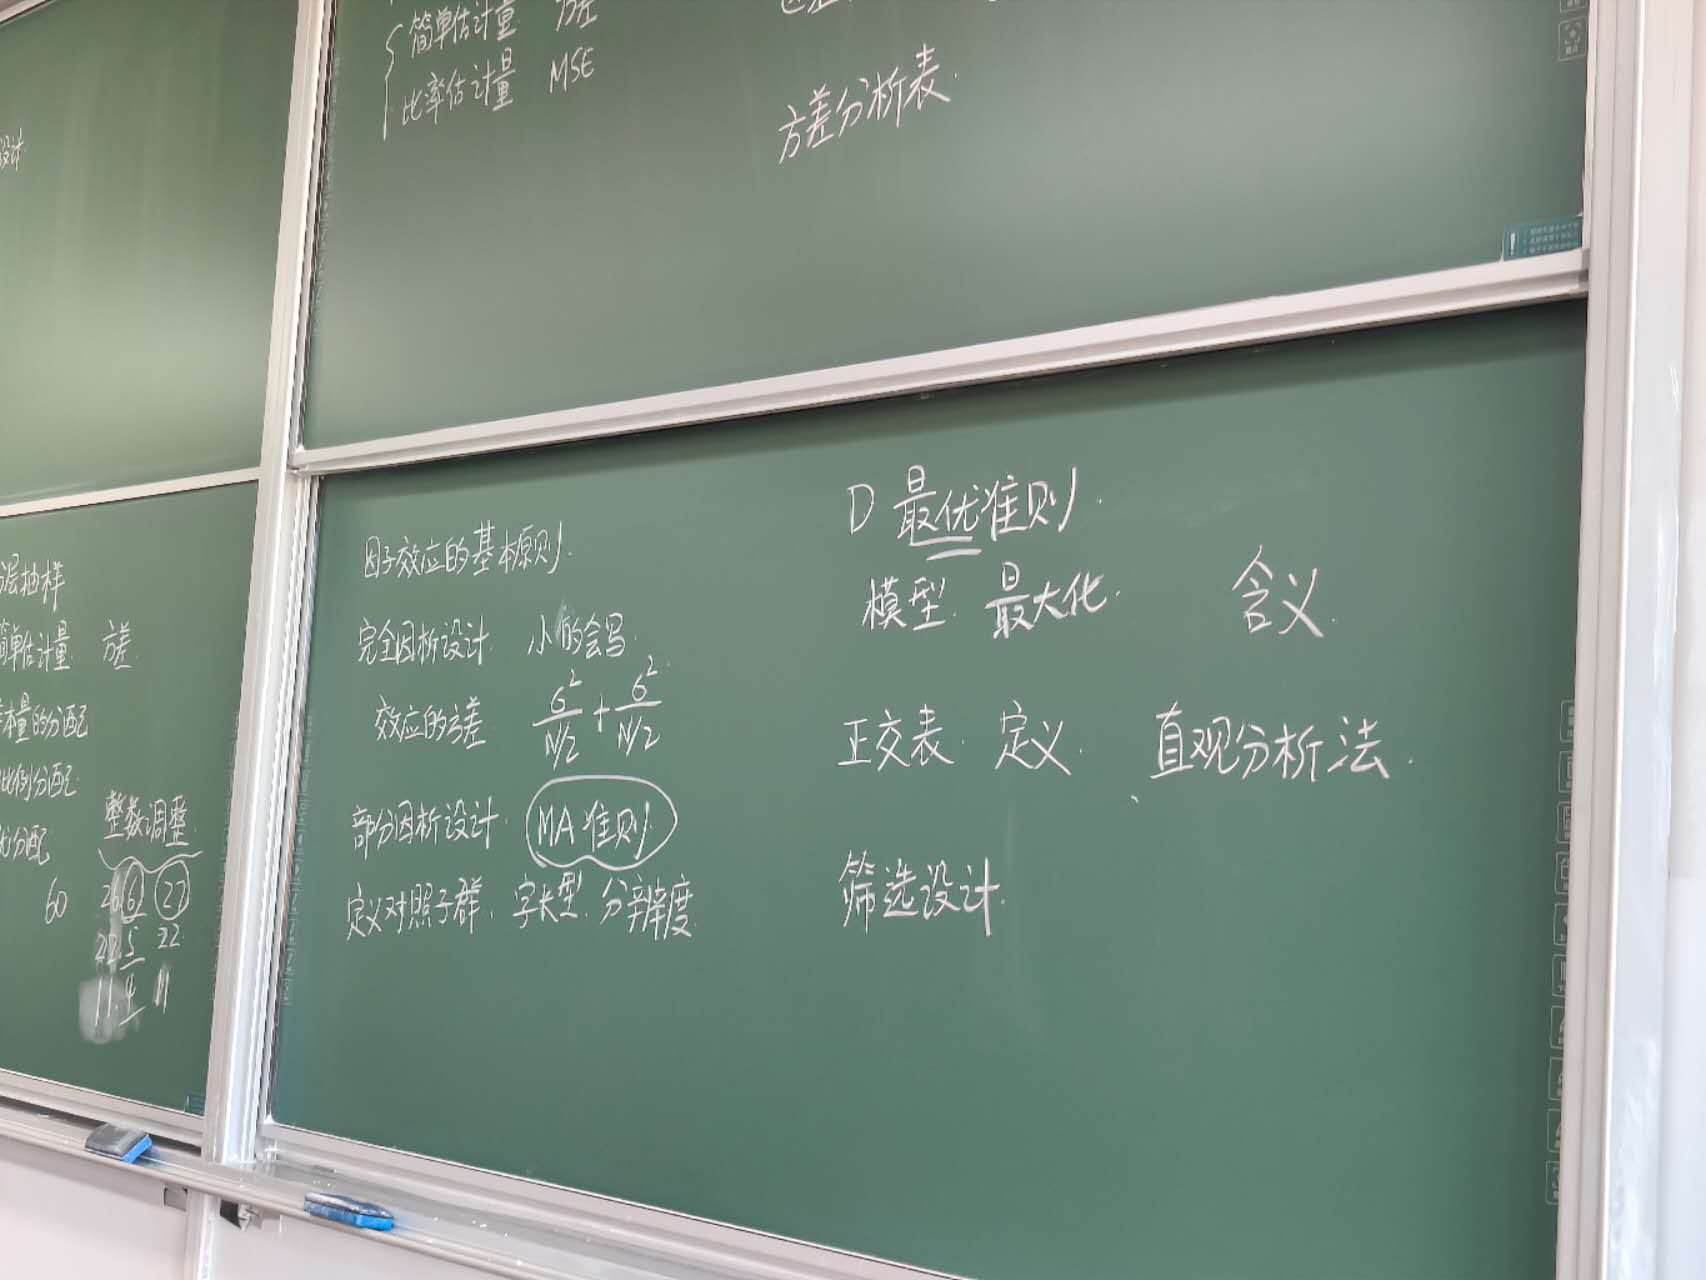 设计
简单估计量 方差
比率估计量 MSE
方差分析表.
层抽样
简单估计量 方差.
本量的分配
比例分配
优分配
整数调整
60
27
22.5 22
11.4 11
因子效应的基本原则.
完全因析设计. 小的会写.
效应的方差 σ²/N/2 + σ²/N/2
部分因析设计. MA准则
定义对照子群. 字长型. 分辨度
D 最优准则.
模型. 最大化. 含义.
正交表. 定义. 直观分析法.
筛选设计.